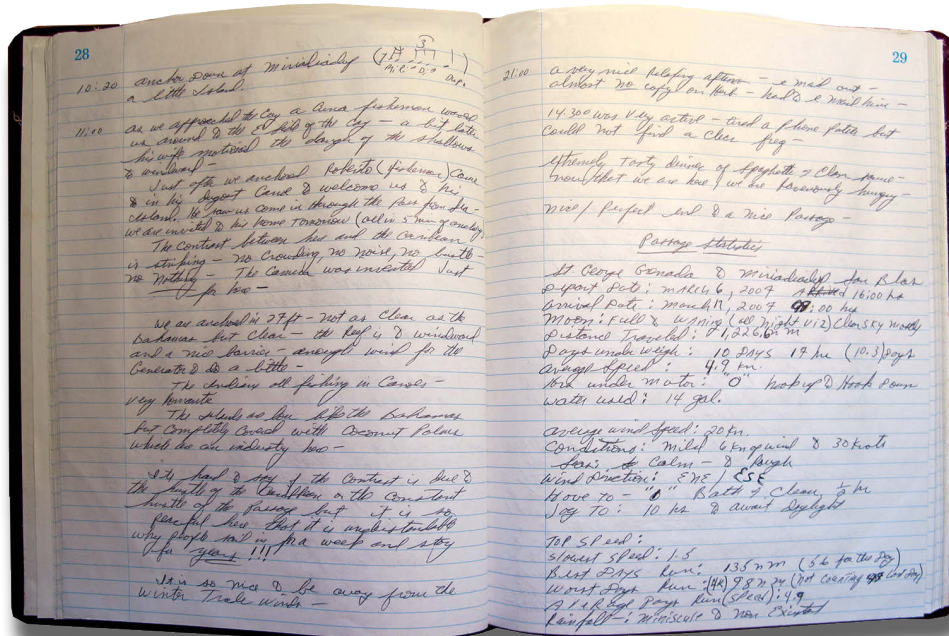 28
10:20 anchor Down at Miriadiadup
a little Island.
11:00 as we approached the Cay a Cuna fisherman waved
us around to the side of the Cay – a bit later
his wife motioned the danger of the shallows
to windward –
Just after we anchored Roberto (fisherman) Came
in his Dugout Canoe & welcome us to his
Island. He saw us come in through the Pass from Sea –
we are invited to his home Tomorrow (all in 5 min of anchoring)
The Contrast between here and the Caribbean
is striking – no Crowding, no noise, no bustle –
no Nothing – The Camera was invented Just
for here –
We are anchored in 27ft – not as Clear as the
Bahamas but Clear – the Reef is to windward
and a nice barrier – enough wind for the
Generator to do a little –
The Indians all fishing in Canoes –
very Romantic
The Islands are low like the Bahamas
but completely Covered with Coconut Palms
which is an industry here –
It's hard to say if the Contrast is Due to
the bustle of the Caribbean or the Constant
hustle of the Passage but it is so
peaceful here that it is understandable
why people sail in for a week and stay
for years!!!
It is so nice to be away from the
Winter Trade Winds –
29
21:00 a very nice Relaxing afternoon – e mail out –
almost no copy on Herb – had e mail him –
14.300 was Very active – tried a phone patch but
Could not find a Clear freq –
extremely Tasty Dinner of Spaghetti & Clam sauce –
now that we are here, we are ravenously hungry
nice/Perfect end to a nice Passage –
Passage Statistics
St George Grenada to Miriadiadup San Blas
Depart Date: MARCH 6, 2009 16:00 hs
arrival Date: March 17, 2009 :00 hrs
Moon: Full & Wining (all night viz) Clear sky mostly
Distance Traveled: 1,226.6 nm
Days under weigh: 10 DAYS 17 hr (10.3) Days
average Speed: 4.9 kn.
hrs under Motor: "0" hook up to Hook Down
Water used: 14 gal.
average wind Speed: 20 Kn.
Conditions: Mild 6 Kng wind to 30 Knots
Calm – to Rough
Wind Direction: ENE / ESE
Hove to – "0" Bath & Clean, 1/2 hr
Jog To: 10 hs to await Daylight
TOP Speed:
Slowest Speed: 1.5
Best Days Run: 135 nm (5.6 for the Day)
Worst Days Run: 98 nm (not Counting last Day)
AVERAGE Days Run (Speed): 4.9
Rainfall –: miniscule to non Existant